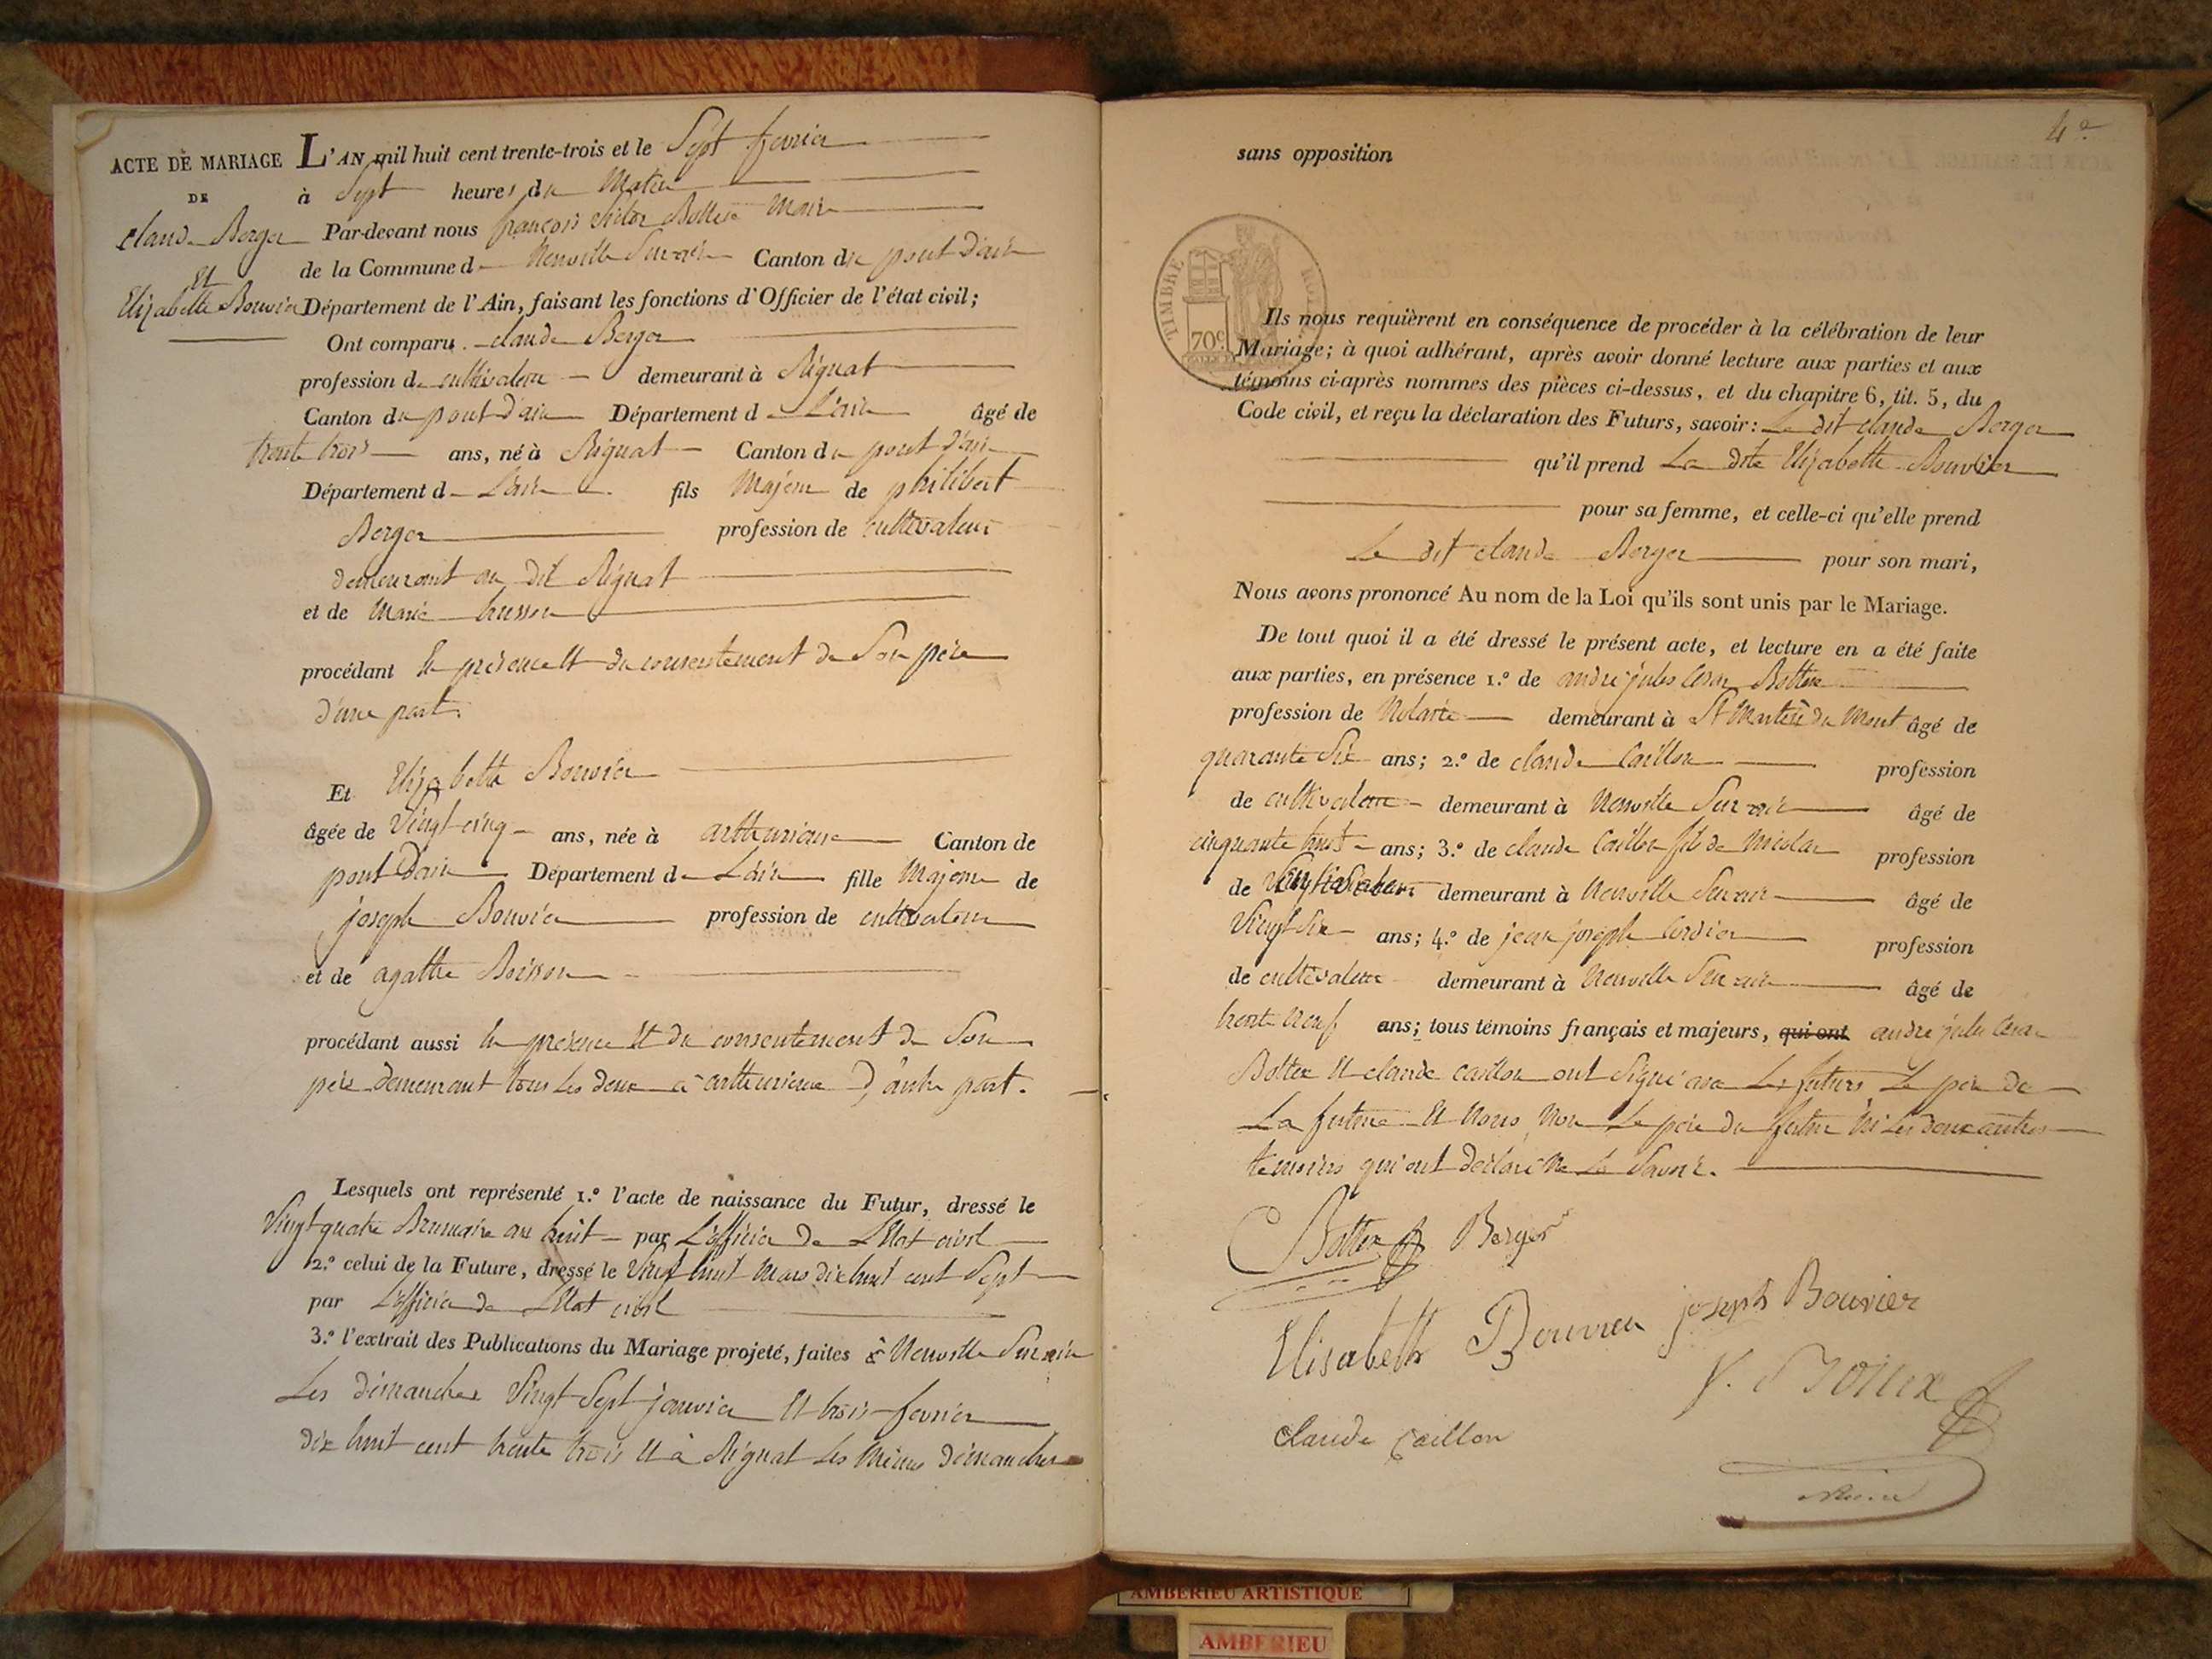 ACTE DE MARIAGE
DE
Claude Berger
Et
Elizabette Bouvier
L'AN mil huit cent trente-trois et le Sept fevrier
à Sept heures du Matin
Par-devant nous françois Victor Bottex Maire
de la Commune de Neuville Sur ain Canton du pont D'ain
Département de l'Ain, faisant les fonctions d'Officier de l'état civil;
Ont comparu claude Berger
profession de cultivateur demeurant à Rignat
Canton du pont D'ain Département de L'ain âgé de
trente trois ans, né à Rignat Canton du pont D'ain
Département de L'ain fils Majeur de philibert
Berger profession de cultivateur
demeurant au dit Rignat
et de Marie
procédant En présence Et du consentement de Son père
d'une part.
Et Elizabette Bouvier
âgée de Vingt-cinq ans, née à arthurieux Canton de
pont D'ain Département de L'ain fille Majeure de
joseph Bouvier profession de cultivateur
et de agathe Boisson
procédant aussi En présence Et du consentement de Son
père demeurant tous Les deux à arthurieux D'autre part.
Lesquels ont représenté 1.º l'acte de naissance du Futur, dressé le
Vingt quatre Brumaire an huit par L'officier de L'Etat civil
2.º celui de la Future, dressé le Vingt huit Mars dix huit cent Sept
par L'officier de L'Etat civil
3.º l'extrait des Publications du Mariage projeté, faites à Neuville Sur ain
Les dimanches Vingt Sept janvier Et trois fevrier
dix huit cent trente trois Et à Rignat Les Mêmes dimanches
4
sans opposition
TIMBRE ROYAL
70c
Ils nous requièrent en conséquence de procéder à la célébration de leur
Mariage; à quoi adhérant, après avoir donné lecture aux parties et aux
témoins ci-après nommés des pièces ci-dessus, et du chapitre 6, tit. 5, du
Code civil, et reçu la déclaration des Futurs, savoir: Le dit claude Berger
qu'il prend La dite Elizabette Bouvier
pour sa femme, et celle-ci qu'elle prend
Le dit claude Berger pour son mari,
Nous avons prononcé Au nom de la Loi qu'ils sont unis par le Mariage.
De tout quoi il a été dressé le présent acte, et lecture en a été faite
aux parties, en présence 1.º de andré jules César Bottex
profession de Notaire demeurant à St Martin du Mont âgé de
quarante Six ans; 2.º de claude Caillon profession
de cultivateur demeurant à Neuville Sur ain âgé de
cinquante huit ans; 3.º de claude Caillon fils de Nicolas profession
de cultivateur demeurant à Neuville Sur ain âgé de
Vingt Six ans; 4.º de jean joseph Cordier profession
de cultivateur demeurant à Neuville Sur ain âgé de
trente Neuf ans; tous témoins français et majeurs, qui ont andré jules César
Bottex Et claude caillon ont Signé avec Les futurs Le père de
La future Et Nous, Non Le père du futur Ni Les deux autres
témoins qui ont déclaré Ne Le Savoir.
Bottex Berger
Elisabeth Bouvier joseph Bouvier
V. Bottex
Claude Caillon
Maire
AMBERIEU ARTISTIQUE
AMBERIEU